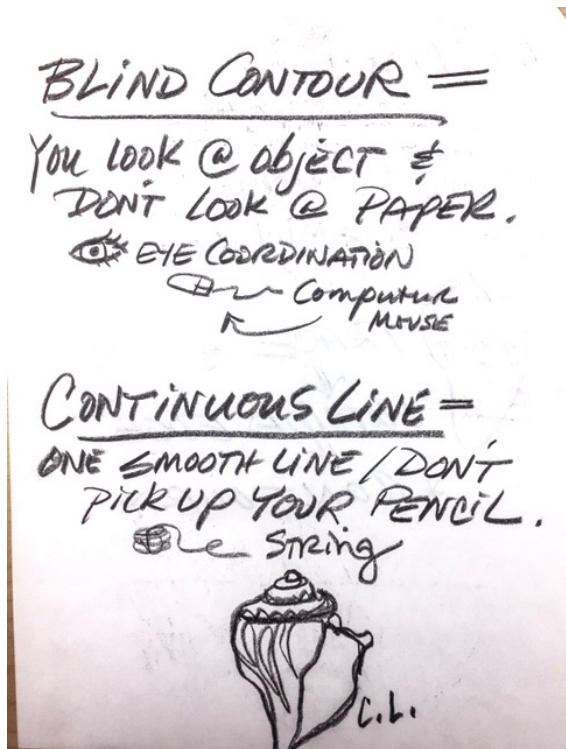 BLIND CONTOUR =
YOU LOOK @ OBJECT &
DON'T LOOK @ PAPER.
EYE COORDINATION
Computur
MOUSE
CONTINUOUS LINE =
ONE SMOOTH LINE / DON'T
PICK UP YOUR PENCIL.
String
C.L.